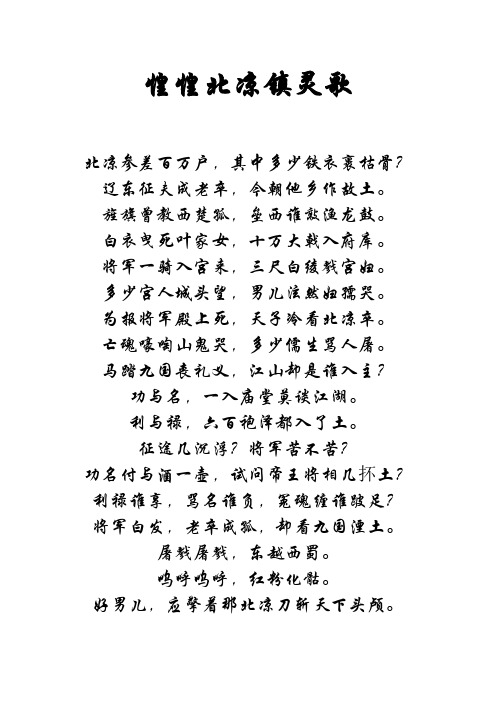 惶惶北凉镇灵歌
北凉参差百万户，其中多少铁衣裹枯骨？
辽东征夫成老卒，今朝他乡作故土。
旌旗曾教西楚孤，垒西谁敲渔龙鼓。
白衣曳死叶家女，十万大戟入府库。
将军一骑入宫来，三尺白绫戮宫妇。
多少宫人城头望，男儿泫然妇孺哭。
为报将军殿上死，天子冷看北凉卒。
亡魂嚎啕山鬼哭，多少儒生骂人屠。
马踏九国丧礼义，江山却是谁入主？
功与名，一入庙堂莫谈江湖。
利与禄，六百袍泽都入了土。
征途几沉浮？将军苦不苦？
功名付与酒一壶，试问帝王将相几抔土？
利禄谁享，骂名谁负，冤魂缠谁跛足？
将军白发，老卒成孤，却看九国湮土。
屠戮屠戮，东越西蜀。
呜呼呜呼，红粉化骷。
好男儿，应擎着那北凉刀斩天下头颅。